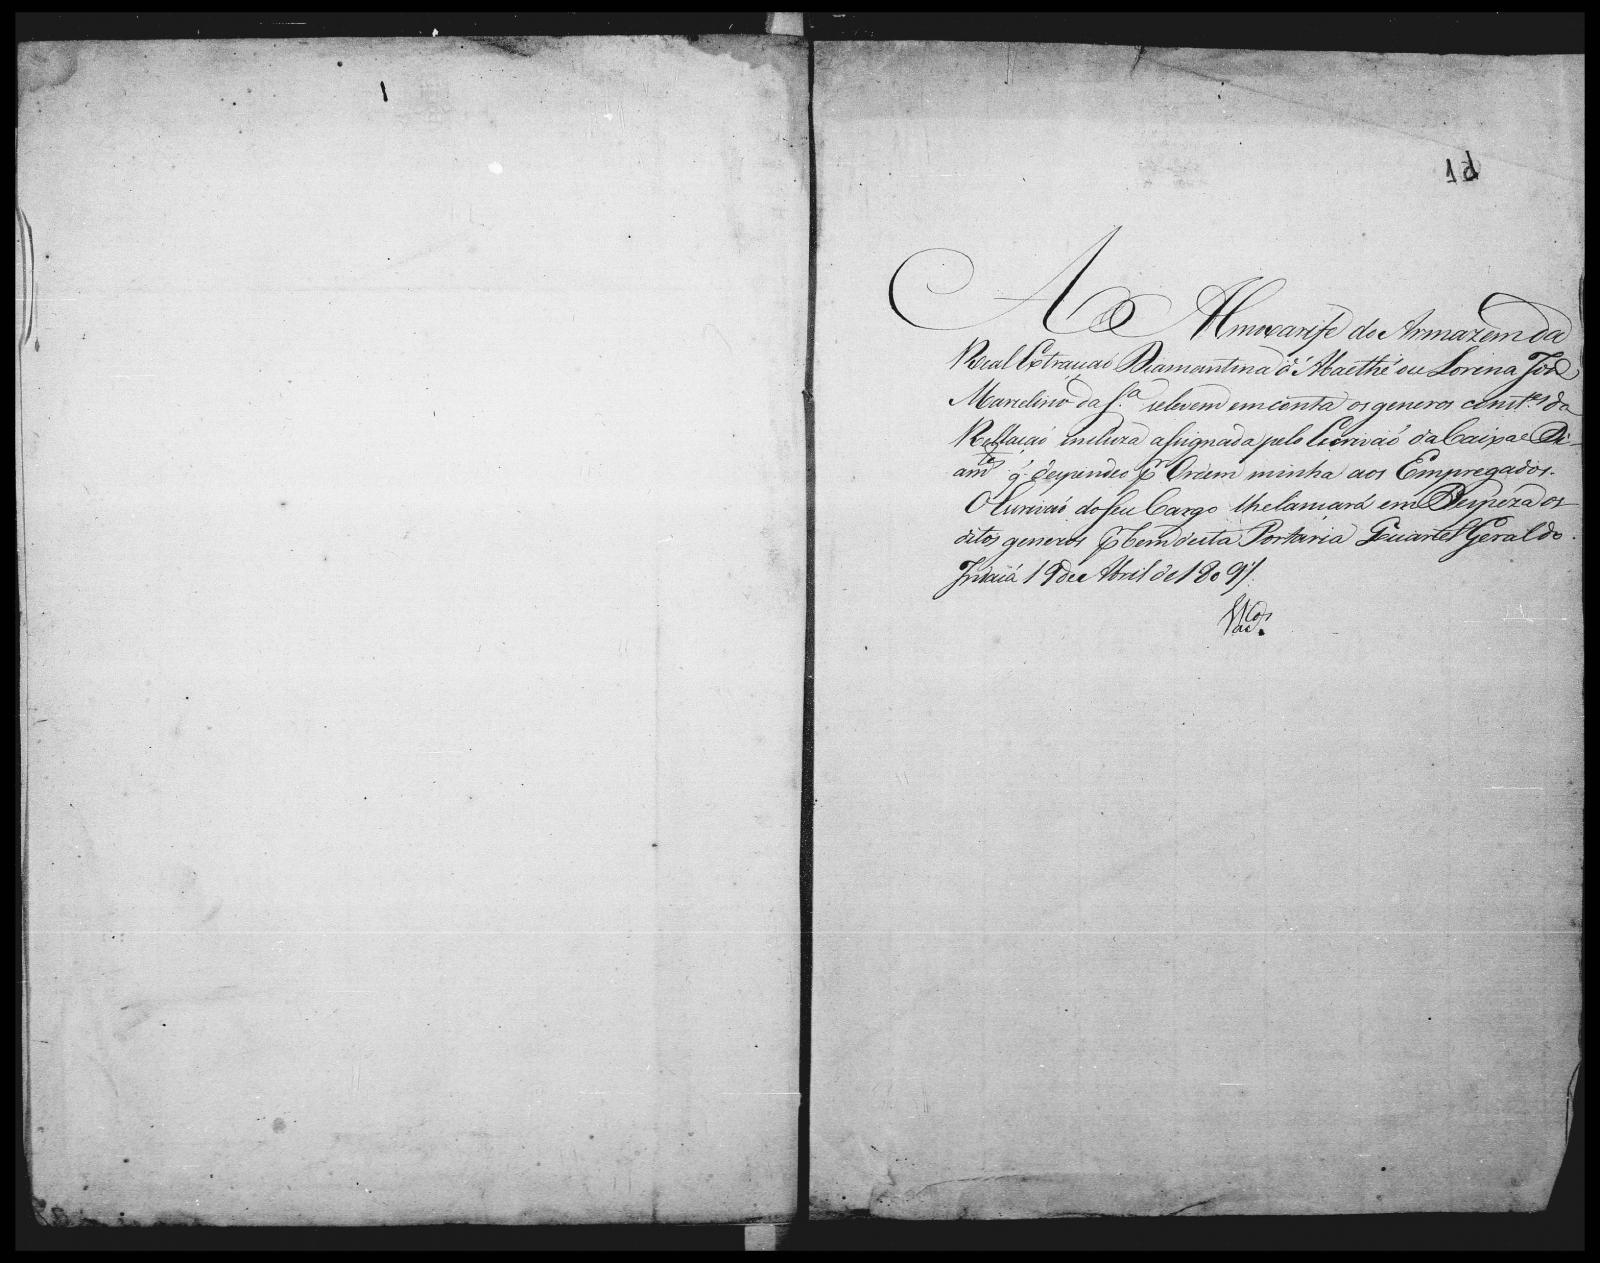 Ao Almoxarife do Armazem da
Real Extracaõ Diamantina d'Abaethé ou Lorena Joze
Marcelino da S.ª selevem em conta os generos const.es da
Rellaçaõ incluza assignada pelo Escrivaõ da Caixa e Di-
am.tes q̃ despendeo p.r Ordem minha aos Empregados.
O Escrivaõ do seu Cargo lhe lansará em Despeza os
ditos generos p̃ bem desta Portaria Quartel Geral do
Indaiá 19 de Abril de 1809//.